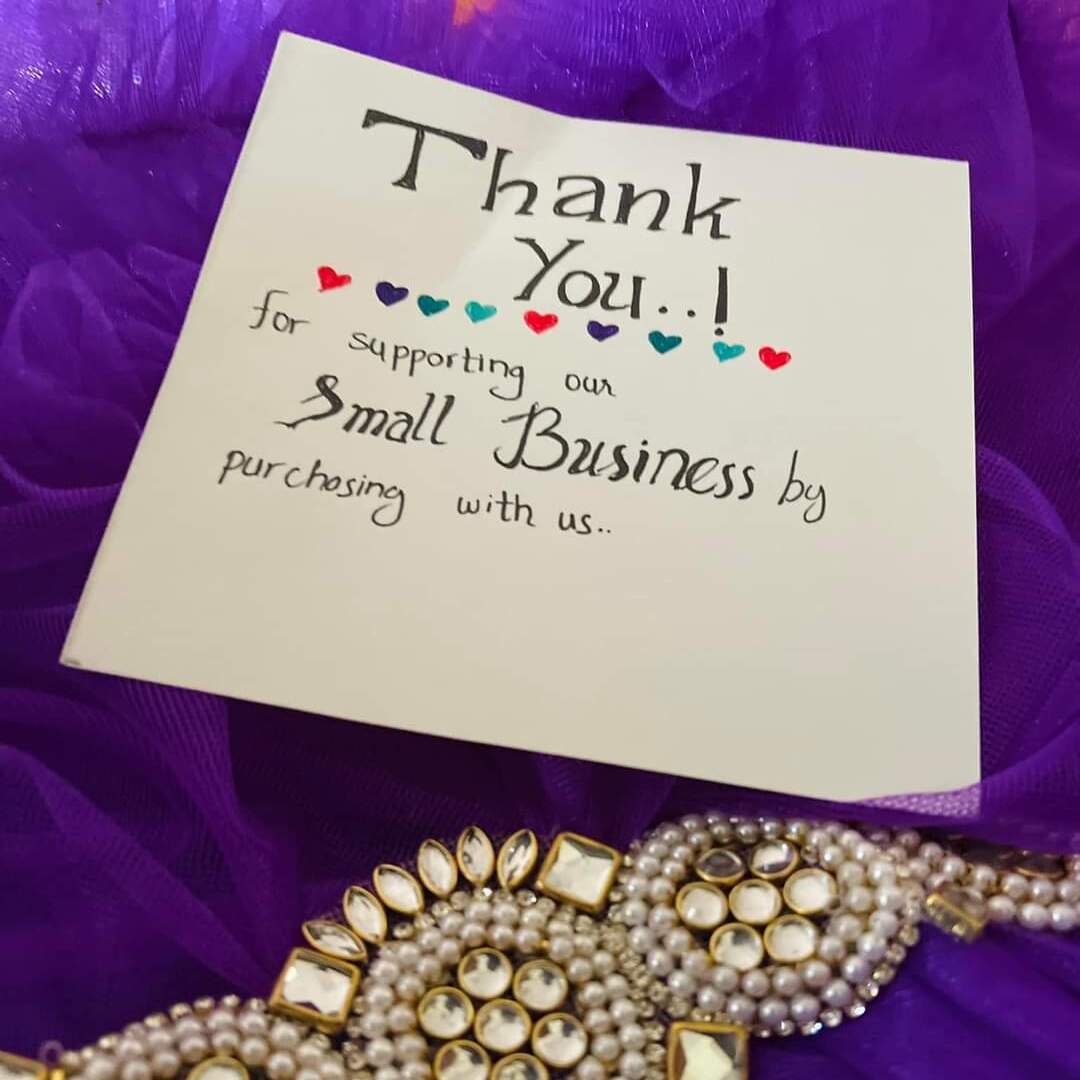 Thank
You..!
for supporting our
Small Business by
purchasing with us..